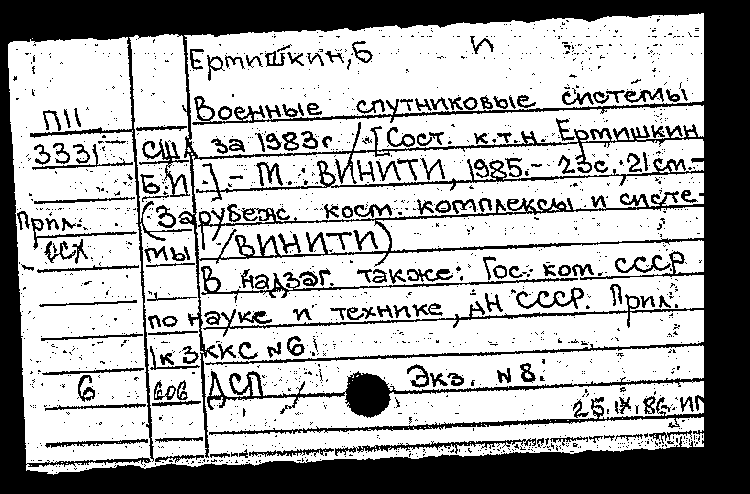 Ертишкин, Б И
П11 Военные спутниковые системы
3331 США за 1983г / [Сост. к.т.н. Ертишкин
Б.И.]. - М.: ВИНИТИ, 1985. - 23с.; 21см. -
Прил. (Зарубеж. косм. комплексы и систе-
ОСХ мы / ВИНИТИ)
В надзаг. также: Гос. ком. СССР
по науке и технике, АН СССР. Прил.
1к3 ККС №6.
6 606 ДСП Экз. №8.
25.IX.86. ИП